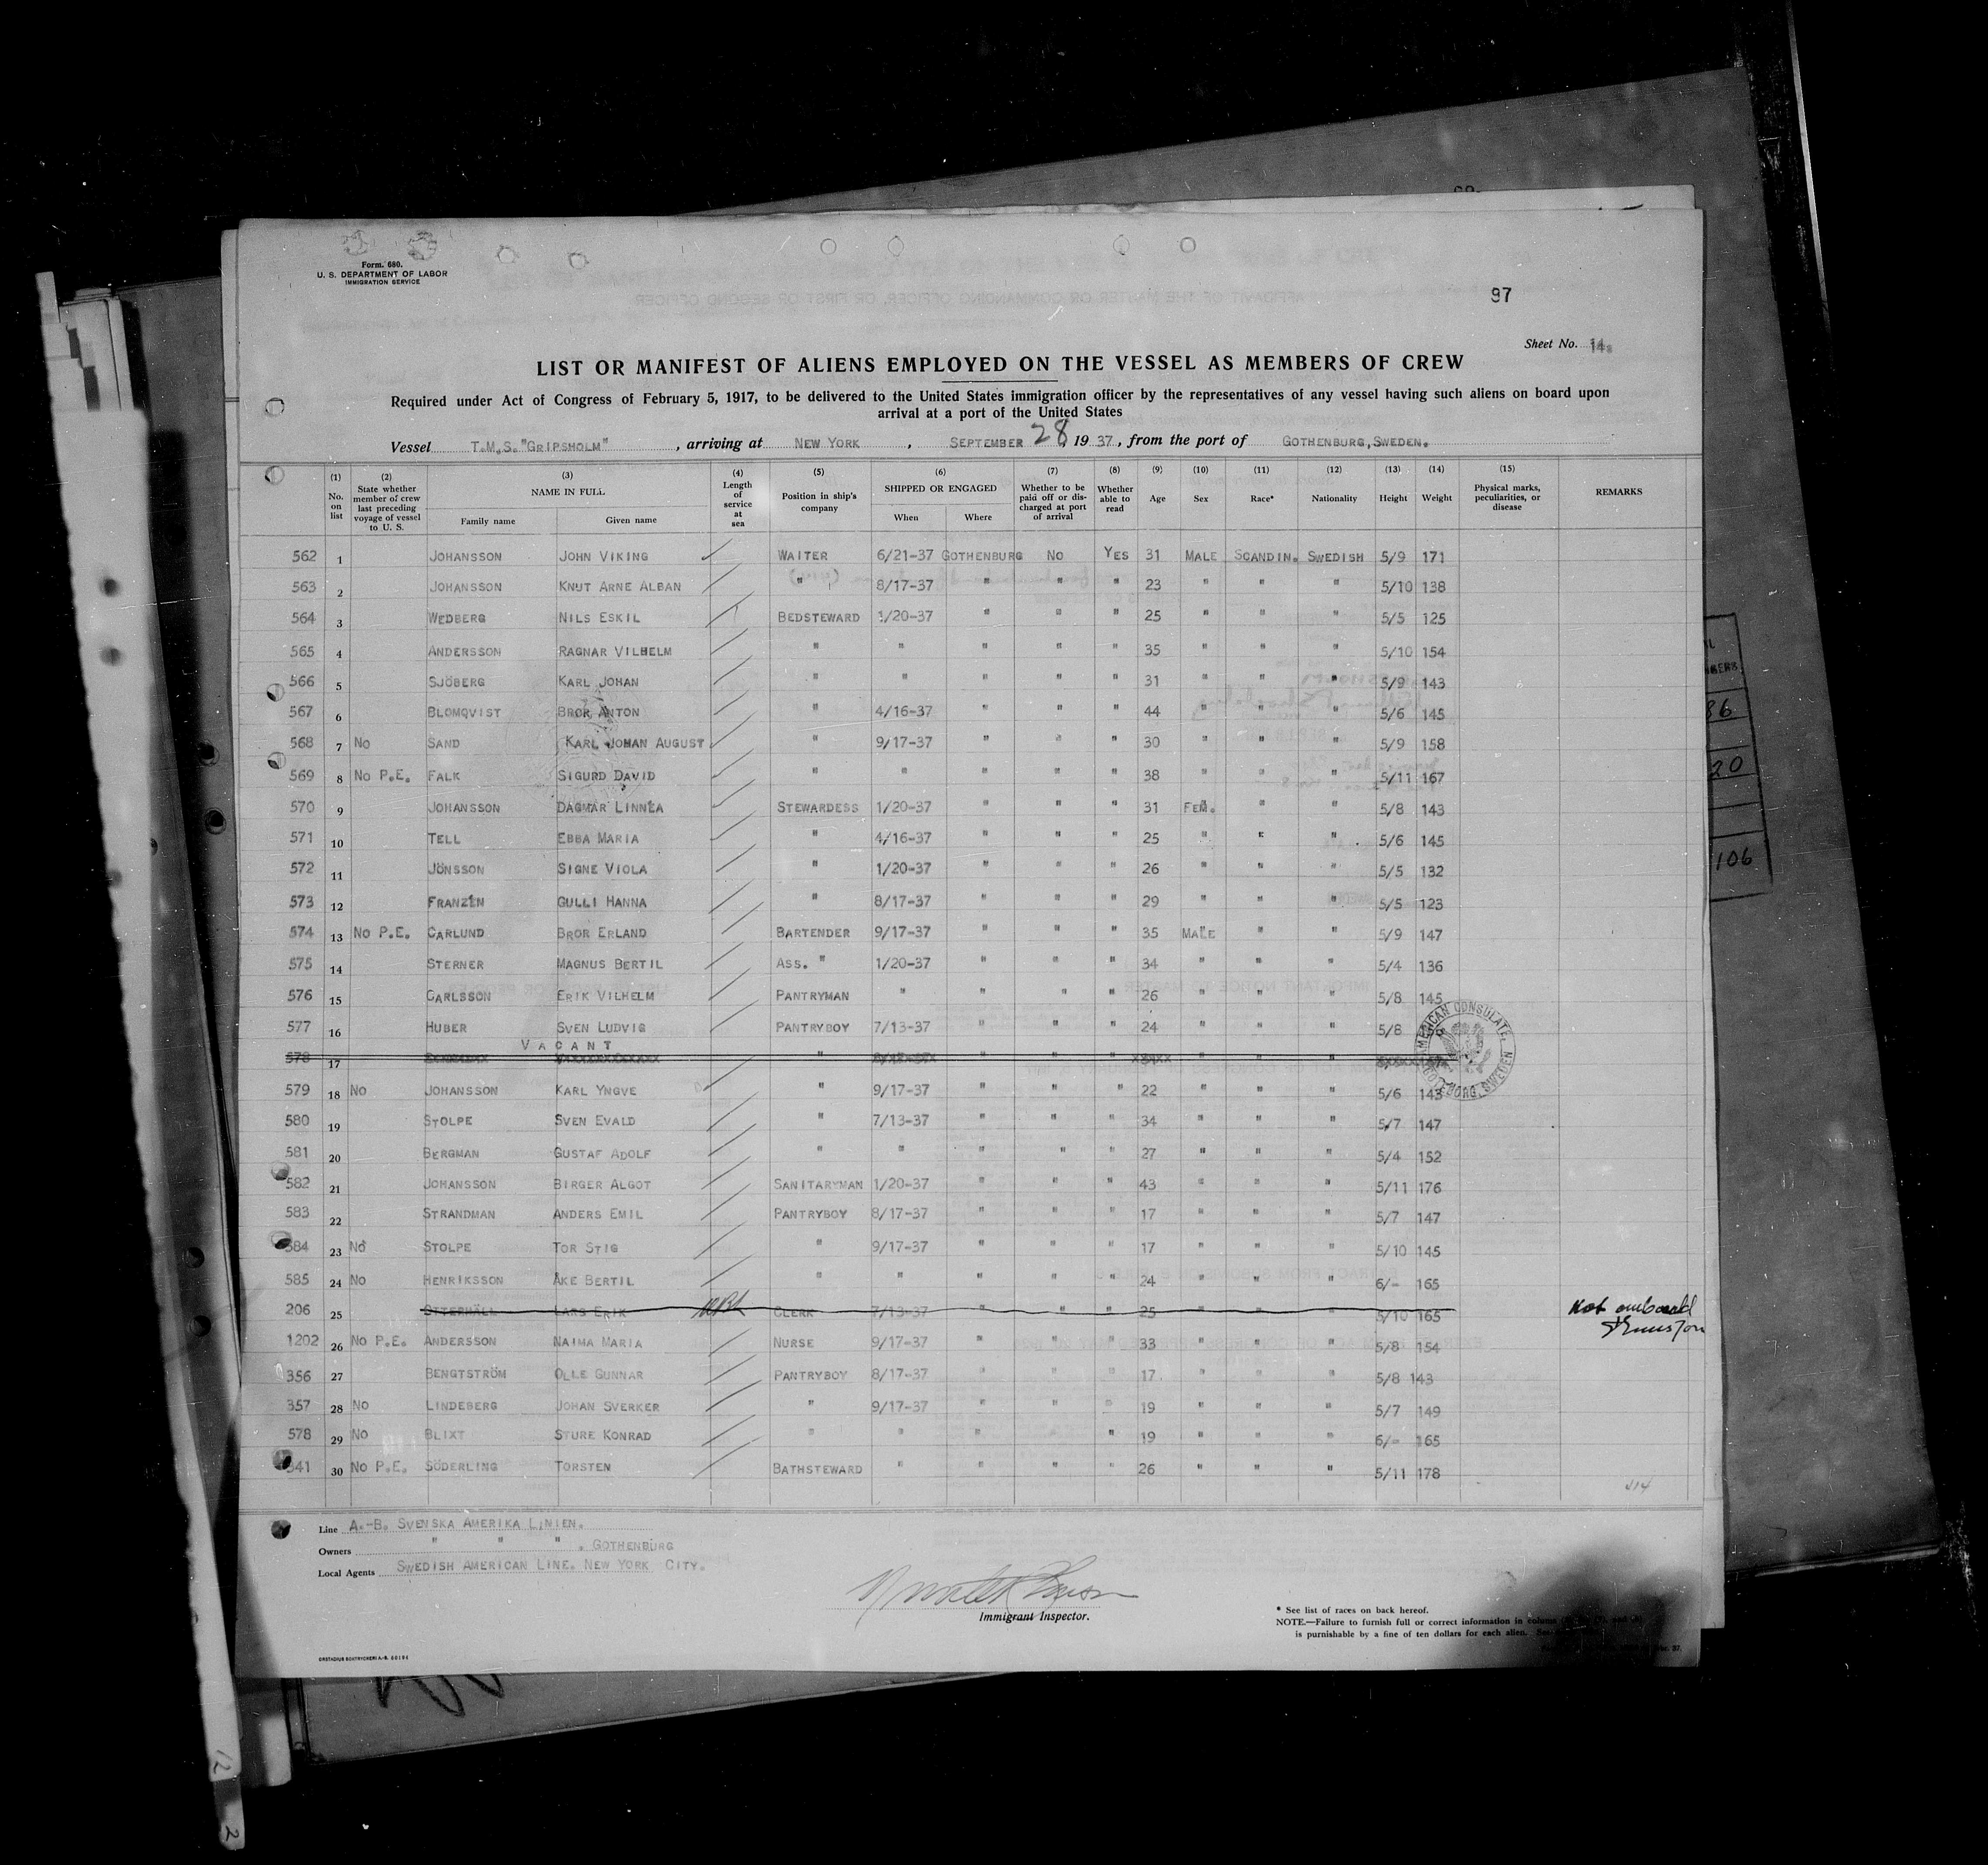 Form. 680.
U. S. DEPARTMENT OF LABOR
IMMIGRATION SERVICE
97
Sheet No. 14
LIST OR MANIFEST OF ALIENS EMPLOYED ON THE VESSEL AS MEMBERS OF CREW
Required under Act of Congress of February 5, 1917, to be delivered to the United States immigration officer by the representatives of any vessel having such aliens on board upon
arrival at a port of the United States
Vessel T.M.S. "GRIPSHOLM", arriving at NEW YORK, SEPTEMBER 28, 1937, from the port of GOTHENBURG, SWEDEN.
(1) No. on list (2) State whether member of crew last preceding voyage of vessel to U. S. (3) NAME IN FULL Family name Given name (4) Length of service at sea (5) Position in ship's company (6) SHIPPED OR ENGAGED When Where (7) Whether to be paid off or discharged at port of arrival (8) Whether able to read (9) Age (10) Sex (11) Race* (12) Nationality (13) Height (14) Weight (15) Physical marks, peculiarities, or disease REMARKS
562 1 JOHANSSON JOHN VIKING WAITER 6/21-37 GOTHENBURG NO YES 31 MALE SCANDIN. SWEDISH 5/9 171
563 2 JOHANSSON KNUT ARNE ALBAN " 8/17-37 " " " 23 " " " 5/10 138
564 3 WEDBERG NILS ESKIL BEDSTEWARD 1/20-37 " " " 25 " " " 5/5 125
565 4 ANDERSSON RAGNAR VILHELM " " " " " 35 " " " 5/10 154
566 5 SJÖBERG KARL JOHAN " " " " " 31 " " " 5/9 143
567 6 BLOMQVIST BROR ANTON " 4/16-37 " " " 44 " " " 5/6 145
568 7 NO SAND KARL JOHAN AUGUST " 9/17-37 " " " 30 " " " 5/9 158
569 8 NO P.E. FALK SIGURD DAVID " " " " " 38 " " " 5/11 167
570 9 JOHANSSON DAGMAR LINNÉA STEWARDESS 1/20-37 " " " 31 FEM. " " 5/8 143
571 10 TELL EBBA MARIA " 4/16-37 " " " 25 " " " 5/6 145
572 11 JÖNSSON SIGNE VIOLA " 1/20-37 " " " 26 " " " 5/5 132
573 12 FRANZÉN GULLI HANNA " 8/17-37 " " " 29 " " " 5/5 123
574 13 NO P.E. CARLUND BROR ERLAND BARTENDER 9/17-37 " " " 35 MALE " " 5/9 147
575 14 STERNER MAGNUS BERTIL ASS. " 1/20-37 " " " 34 " " " 5/4 136
576 15 CARLSSON ERIK VILHELM PANTRYMAN " " " " 26 " " " 5/8 145
577 16 HUBER SVEN LUDVIG PANTRYBOY 7/13-37 " " " 24 " " " 5/8
VACANT
578 17 " " " " " " "
579 18 NO JOHANSSON KARL YNGVE " 9/17-37 " " " 22 " " " 5/6 143
580 19 STOLPE SVEN EVALD " 7/13-37 " " " 34 " " " 5/7 147
581 20 BERGMAN GUSTAF ADOLF " " " " " 27 " " " 5/4 152
582 21 JOHANSSON BIRGER ALGOT SANITARYMAN 1/20-37 " " " 43 " " " 5/11 176
583 22 STRANDMAN ANDERS EMIL PANTRYBOY 8/17-37 " " " 17 " " " 5/7 147
584 23 NO STOLPE TOR STIG " 9/17-37 " " " 17 " " " 5/10 145
585 24 NO HENRIKSSON ÅKE BERTIL " " " " " 24 " " " 6/- 165
206 25 OTTERHÄLL LARS ERIK CLERK 7/13-37 " " " 25 " " " 5/10 165 Not onboard
1202 26 NO P.E. ANDERSSON NAIMA MARIA NURSE 9/17-37 " " " 33 " " " 5/8 154
356 27 BENGTSTRÖM OLLE GUNNAR PANTRYBOY 8/17-37 " " " 17 " " " 5/8 143
357 28 NO LINDEBERG JOHAN SVERKER " 9/17-37 " " " 19 " " " 5/7 149
578 29 NO BLIXT STURE KONRAD " " " " " 19 " " " 6/- 165
341 30 NO P.E. SÖDERLING TORSTEN BATHSTEWARD " " " " 26 " " " 5/11 178
AMERICAN CONSULATE, GOTEBORG, SWEDEN
Line A.-B. SVENSKA AMERIKA LINIEN.
Owners " " " , GOTHENBURG
Local Agents SWEDISH AMERICAN LINE. NEW YORK CITY.
Immigrant Inspector.
* See list of races on back hereof.
NOTE.—Failure to furnish full or correct information in
is punishable by a fine of ten dollars for each alien.
86
20
106
12
2